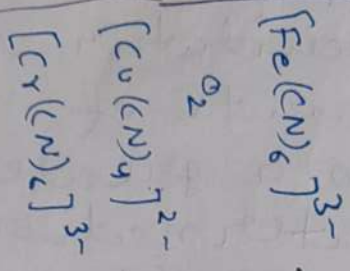 [Fe(CN)₆]³⁻
O₂
[Cu(CN)₄]²⁻
[Cr(CN)₆]³⁻